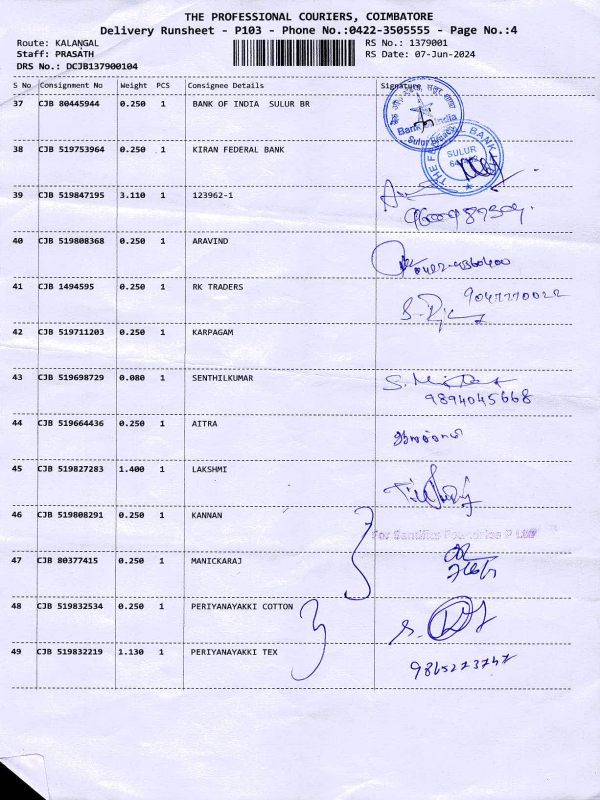 THE PROFESSIONAL COURIERS, COIMBATORE
Delivery Runsheet - P103 - Phone No.:0422-3505555 - Page No.:4
Route: KALANGAL RS No.: 1379001
Staff: PRASATH RS Date: 07-Jun-2024
DRS No.: DCJB137900104
S No Consignment No Weight PCS Consignee Details Signature
37 CJB 80445944 0.250 1 BANK OF INDIA SULUR BR
Bank of India
Sulur Branch
38 CJB 519753964 0.250 1 KIRAN FEDERAL BANK
THE FEDERAL BANK
SULUR
39 CJB 519847195 3.110 1 123962-1
40 CJB 519808368 0.250 1 ARAVIND
41 CJB 1494595 0.250 1 RK TRADERS
42 CJB 519711203 0.250 1 KARPAGAM
43 CJB 519698729 0.080 1 SENTHILKUMAR
9894045668
44 CJB 519664436 0.250 1 AITRA
45 CJB 519827283 1.400 1 LAKSHMI
46 CJB 519808291 0.250 1 KANNAN
For Foundries P Ltd
47 CJB 80377415 0.250 1 MANICKARAJ
48 CJB 519832534 0.250 1 PERIYANAYAKKI COTTON
49 CJB 519832219 1.130 1 PERIYANAYAKKI TEX